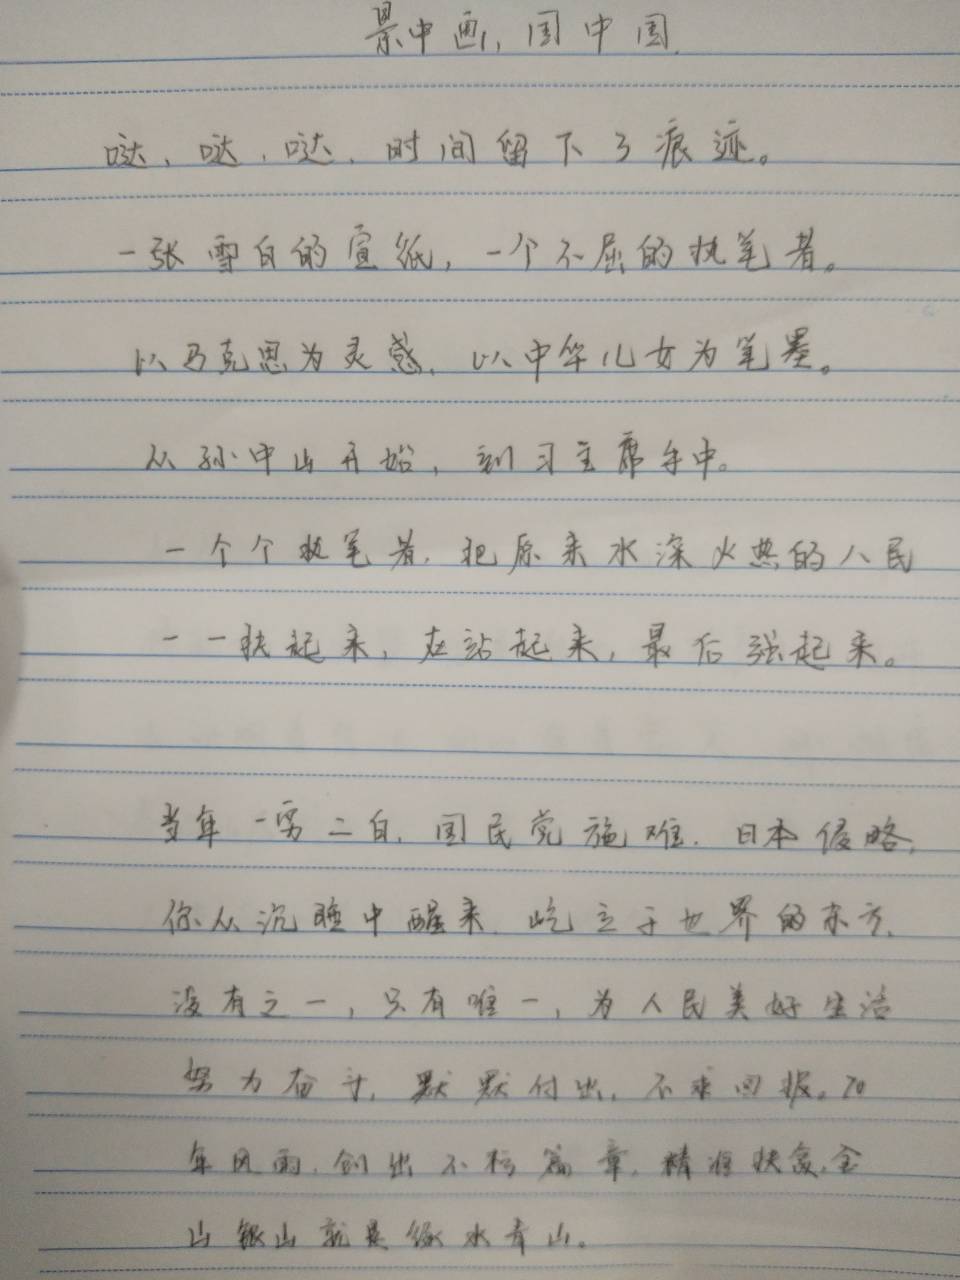 景中画,国中国.
哒、哒、哒、时间留下了痕迹。
一张雪白的宣纸,一个不屈的执笔者。
以马克思为灵感、以中华儿女为笔墨。
从孙中山开始,到习主席手中。
一个个执笔者,把原来水深火热的人民
一一扶起来,在站起来,最后强起来。
当年一穷二白,国民党施难.日本侵略,
你从沉睡中醒来,屹立于世界的东方,
没有之一,只有唯一,为人民美好生活
努力奋斗,默默付出,不求回报。70
年风雨,创出不朽篇章,精准扶贫,金
山银山就是绿水青山。